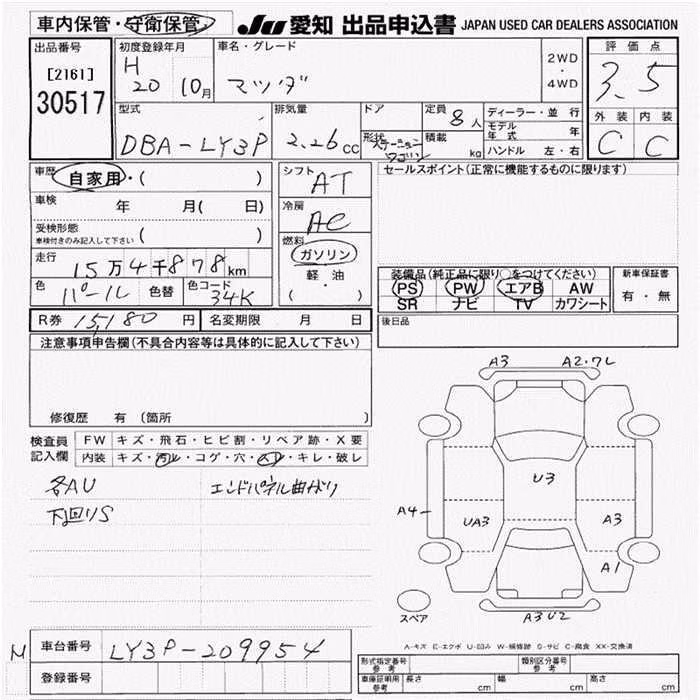 車内保管・守衛保管 JU 愛知 出品申込書 JAPAN USED CAR DEALERS ASSOCIATION
出品番号 初度登録年月 車名・グレード 2WD・4WD 評価点
[2161] H 20 10月 マツダ 3.5
30517 型式 排気量 ドア 定員 8人 ディーラー・並行 外装 内装
DBA-LY3P 2.26cc 形状 ステーションワゴン 積載 kg モデル年式 年 C C
ハンドル 左・右
車歴 自家用・( ) シフト AT セールスポイント(正常に機能するものに限ります)
車検 年 月( 日) 冷房 AC
受検形態 ( )
車検付きのみ記入して下さい
燃料 ガソリン
走行 15万4千878km 軽・油 装備品(純正品に限り○をつけてください) 新車保証書
色 パール 色替 色コード 34K ( ) PS PW エアB AW 有・無
SR ナビ TV カワシート
R券 15,180円 名変期限 月 日 後日品
注意事項申告欄(不具合内容等は具体的に記入して下さい)
A3 A2・7L
修復歴 有 〔箇所 〕
検査員 FW キズ・飛石・ヒビ割・リペア跡・X要
記入欄 内装 キズ・汚れ・コゲ・穴・スレ・キレ・破レ
各AU エンドパネル曲がり U3
下回りS
A4 UA3 A3
A1
スペア A3U2
A-キズ E-エクボ U-凹み W-補修跡 S-サビ C-腐食 XX-交換済
M 車台番号 LY3P-209954
形式指定番号 参考 類別区分番号 参考
登録番号 車庫証明用 参考 長さ cm 幅 cm 高さ cm